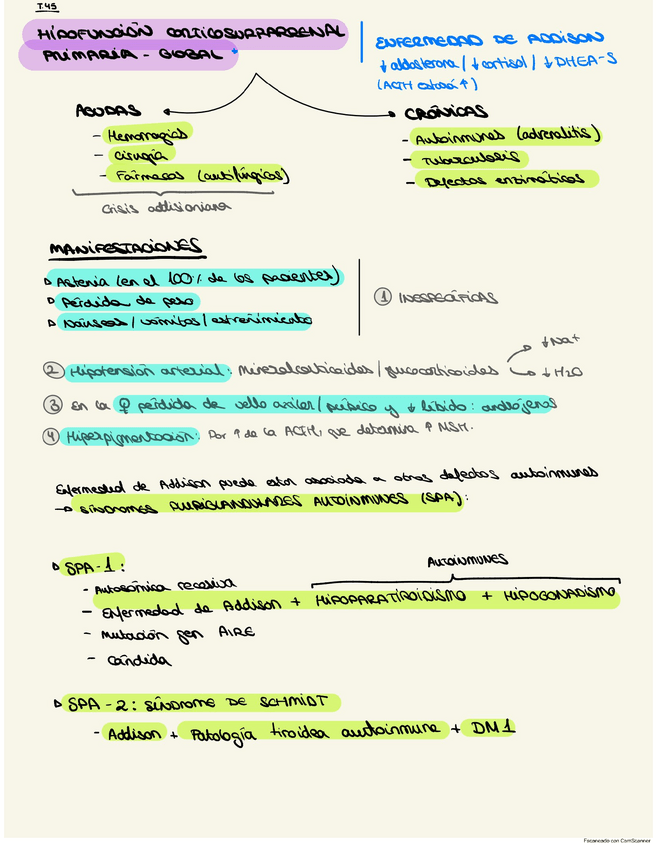 T.45
HIPOFUNCIÓN CORTICOSUPRARRENAL
PRIMARIA - GLOBAL
ENFERMEDAD DE ADDISON
↓ aldosterona / ↓ cortisol / ↓ DHEA-S
(ACTH estará ↑)
AGUDAS
- Hemorragias
- Cirugía
- Fármacos (antifúngicos)
Crisis addisoniana
CRÓNICAS
- Autoinmunes (adrenalitis)
- Tuberculosis
- Defectos enzimáticos
MANIFESTACIONES
▹ Astenia (en el 100% de los pacientes)
▹ Pérdida de peso
▹ Náuseas / vómitos / estreñimiento
① INESPECÍFICAS
② Hipotensión arterial: Mineralcorticoides / glucocorticoides
↓ Na+
↓ H2O
③ En la ♀ pérdida de vello axilar / púbico y ↓ libido: andrógenos
④ Hiperpigmentación: Por ↑ de la ACTH, que determina ↑ MSH.
Enfermedad de Addison puede estar asociada a otros defectos autoinmunes
→ SÍNDROMES PLURIGLANDULARES AUTOINMUNES (SPA):
▹ SPA-1:
AUTOINMUNES
- Autosómica recesiva
- Enfermedad de Addison + HIPOPARATIROIDISMO + HIPOGONADISMO
- Mutación gen AIRE
- Cándida
▹ SPA-2: SÍNDROME DE SCHMIDT
- Addison + Patología tiroidea autoinmune + DM1
Escaneado con CamScanner